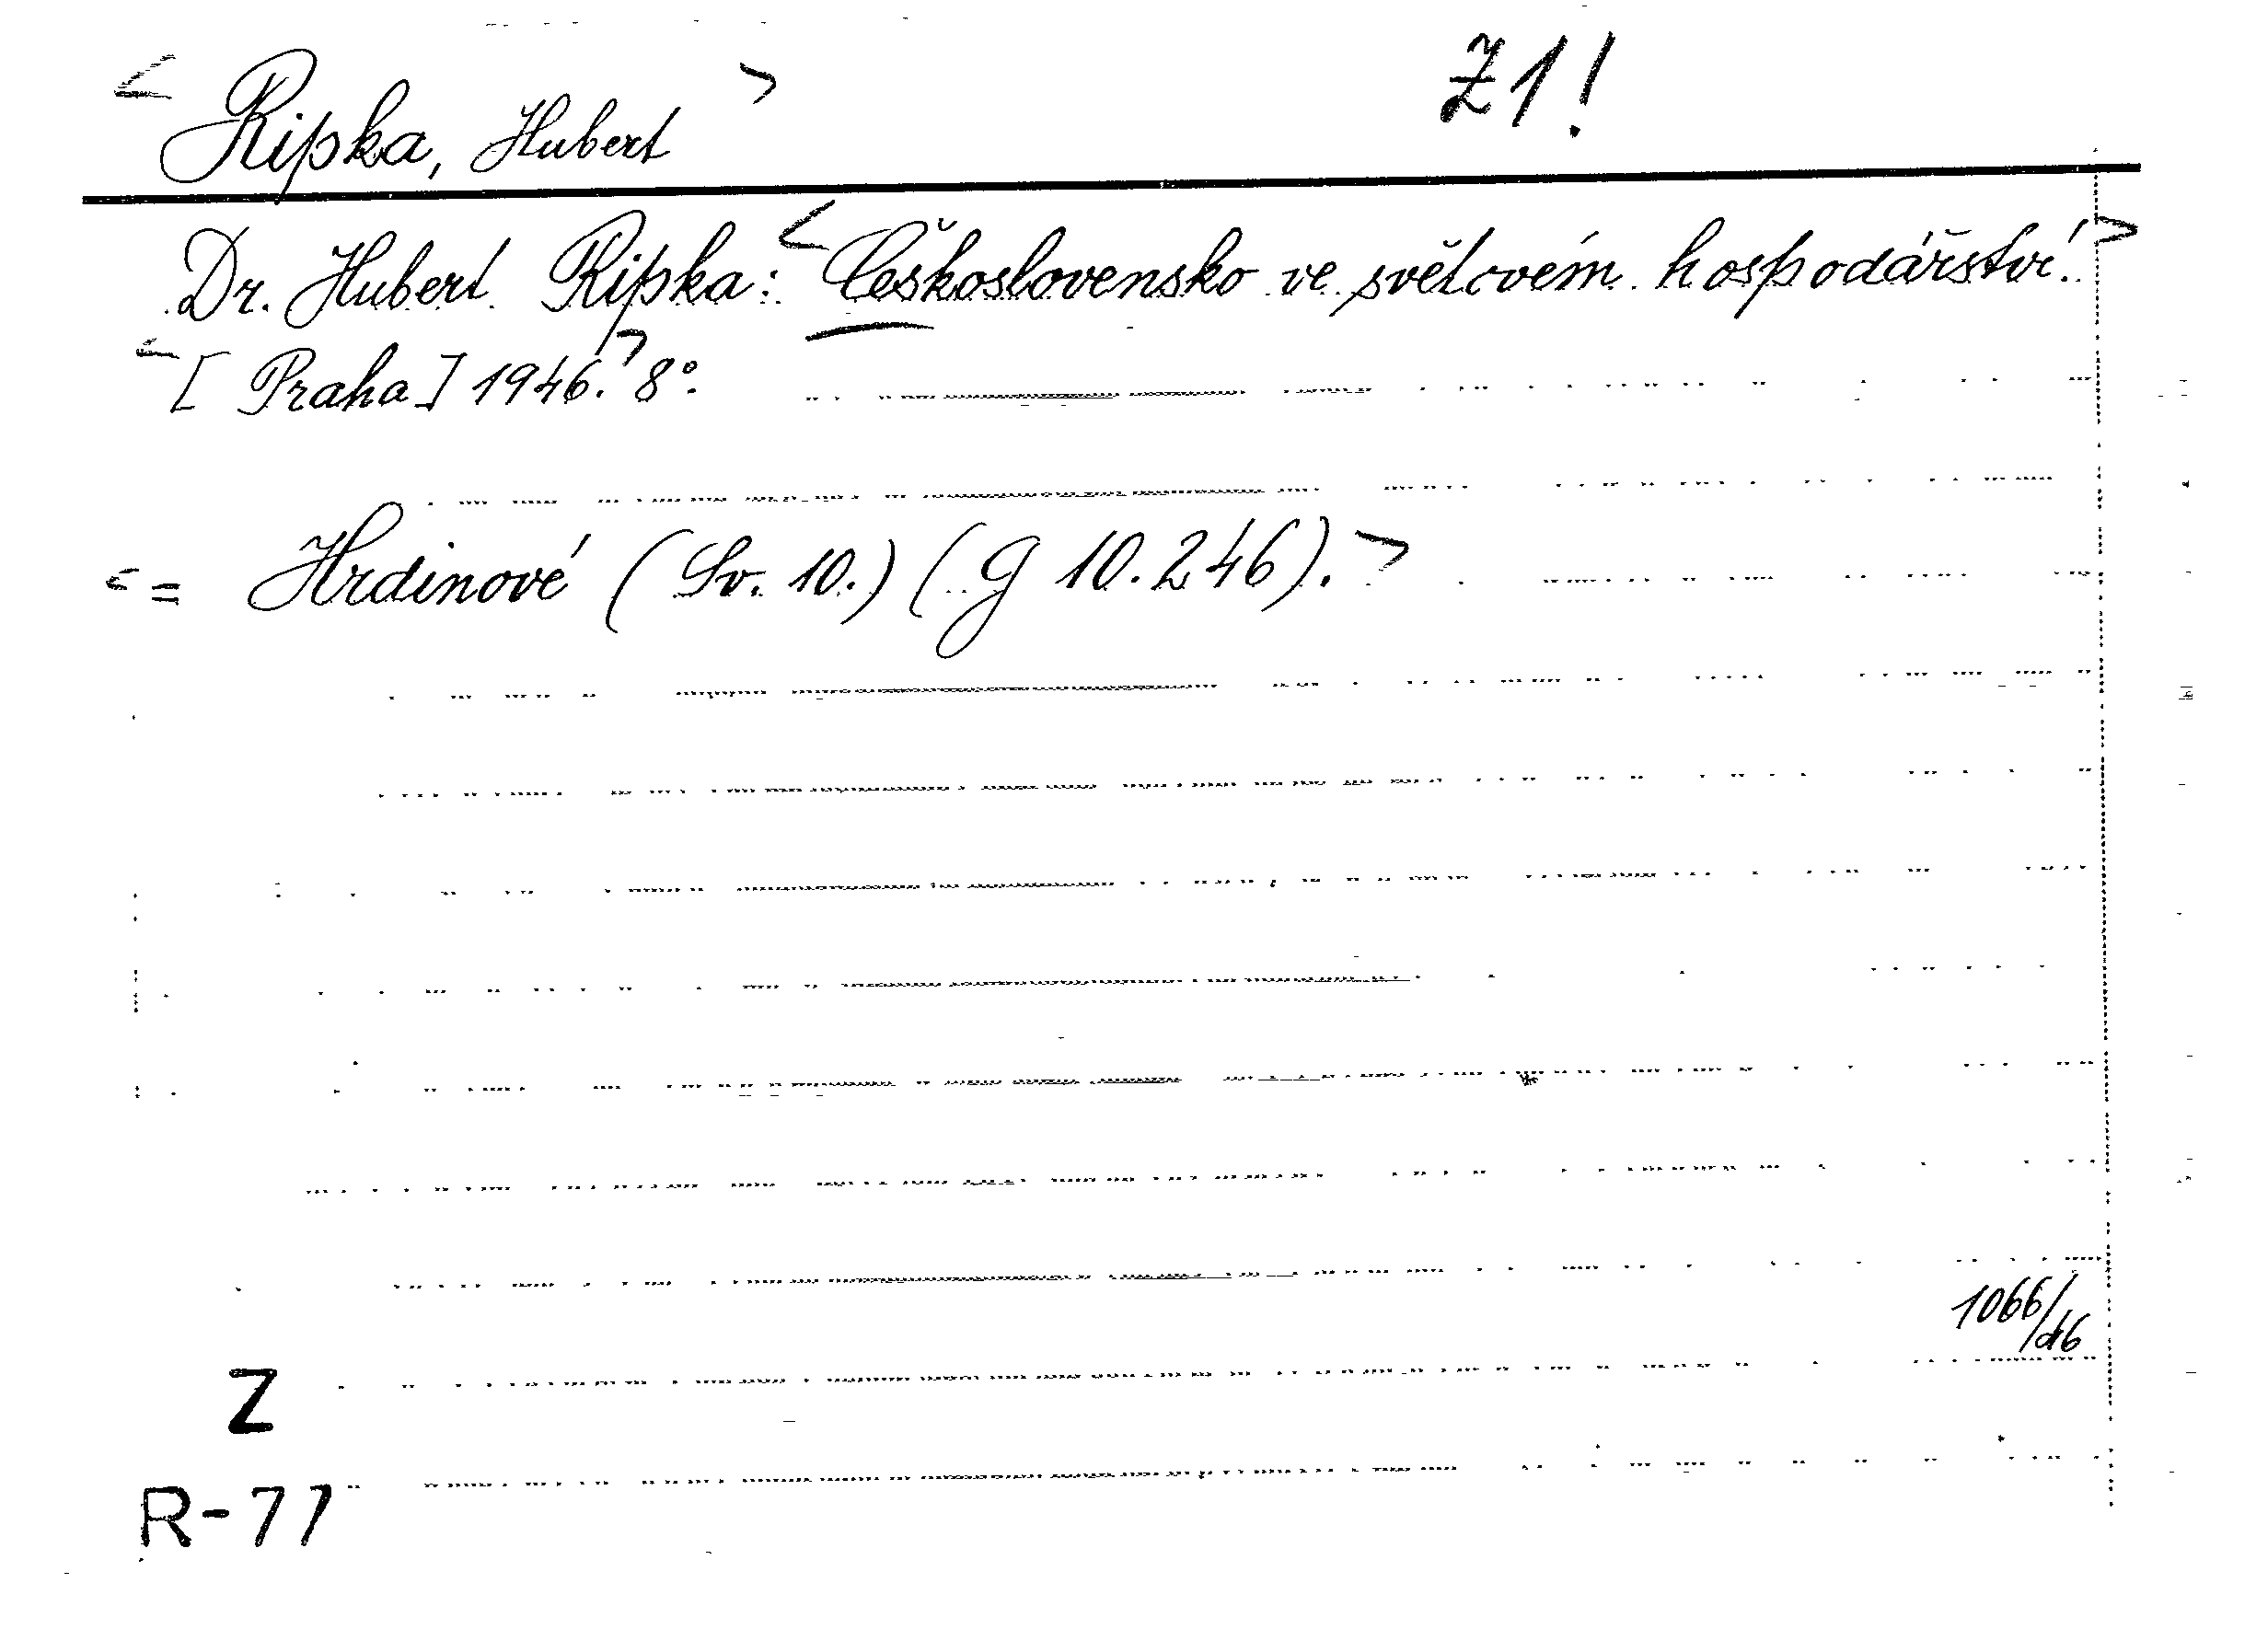 < Ripka, Hubert > Z1!
Dr. Hubert Ripka: < Československo ve světovém hospodářství. >
< [Praha] 1946. > 8°.
< = Hrdinové (Sv. 10.) (G 10.246). >
1066/d6
Z
R-77